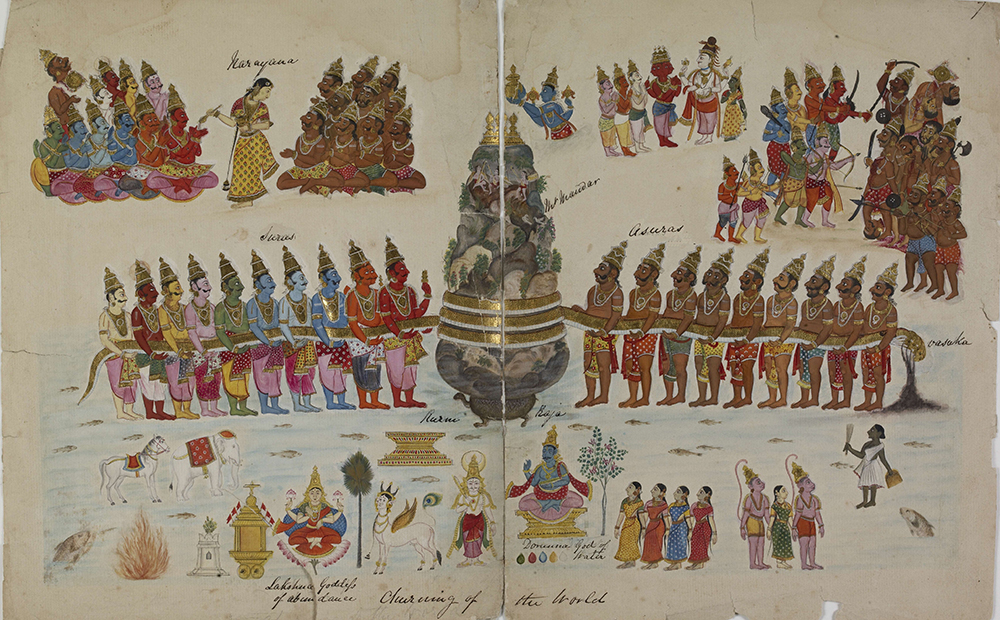 Narayana
Mt Mandar
Suras
Asuras
Vasuka
Kurmi Raja
Lakshmi Goddess
of abundance
God of
Water
Churning of the World